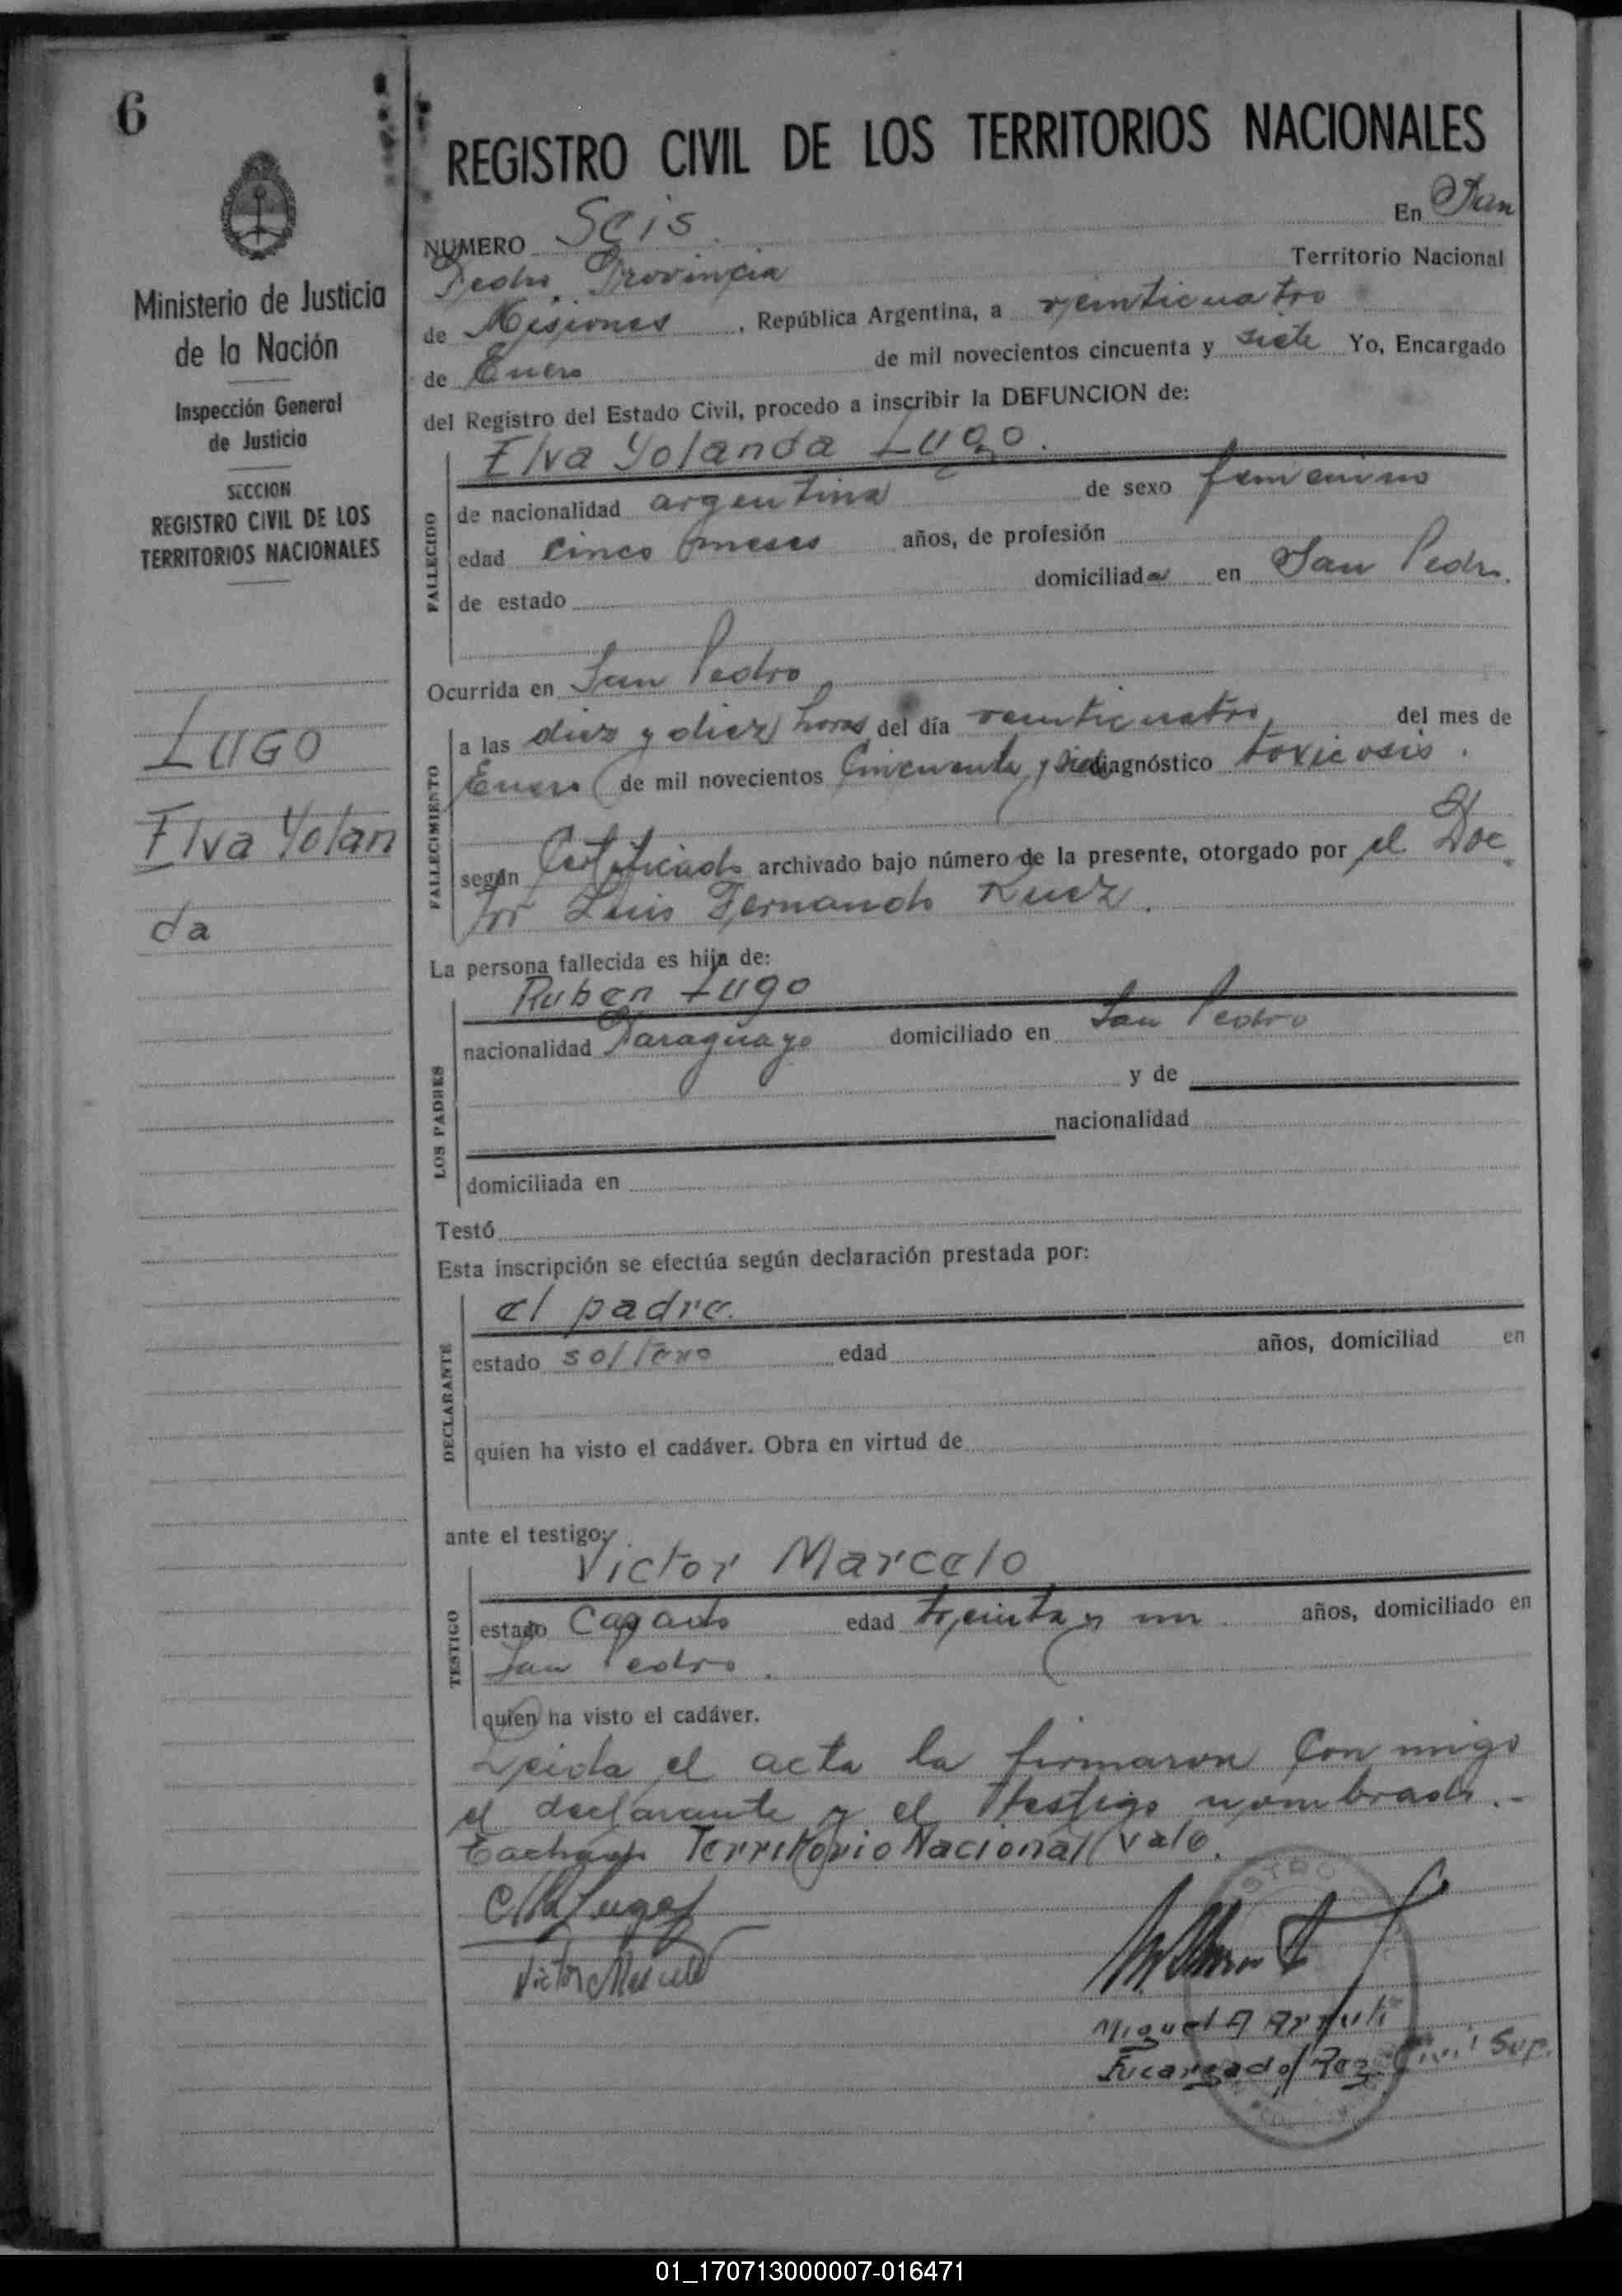 6
Ministerio de Justicia
de la Nación
Inspección General
de Justicia
SECCION
REGISTRO CIVIL DE LOS
TERRITORIOS NACIONALES
LUGO
Elva Yolan
da
REGISTRO CIVIL DE LOS TERRITORIOS NACIONALES
NUMERO Seis En San
Pedro Provincia Territorio Nacional
de Misiones, República Argentina, a veinticuatro
de Enero de mil novecientos cincuenta y siete Yo, Encargado
del Registro del Estado Civil, procedo a inscribir la DEFUNCION de:
Elva Yolanda Lugo.
FALLECIDO
de nacionalidad argentina de sexo femenino
edad cinco meses años, de profesión
de estado domiciliada en San Pedro.
Ocurrida en San Pedro
FALLECIMIENTO
a las diez y diez horas del día veinticuatro, del mes de
Enero de mil novecientos Cincuenta y siete diagnóstico toxicosis.
según Certificado archivado bajo número de la presente, otorgado por el Doc
tor Luis Fernando Ruez.
La persona fallecida es hija de:
Ruben Lugo
LOS PADRES
nacionalidad Paraguayo domiciliado en San Pedro
y de
nacionalidad
domiciliada en
Testó
Esta inscripción se efectúa según declaración prestada por:
el padre.
DECLARANTE
estado soltero edad años, domiciliad en
quien ha visto el cadáver. Obra en virtud de
ante el testigo
Victor Marcelo
TESTIGO
estado Casado edad treinta y un años, domiciliado en
San Pedro.
quien ha visto el cadáver.
Leida el acta la firmaron Con migo
el declarante y el testigo nombrado.-
Tachado Territorio Nacional Vale.
Lugo
Victor Marcelo
Miguel A
Encargado Reg. Civil Sup.
01_170713000007-016471